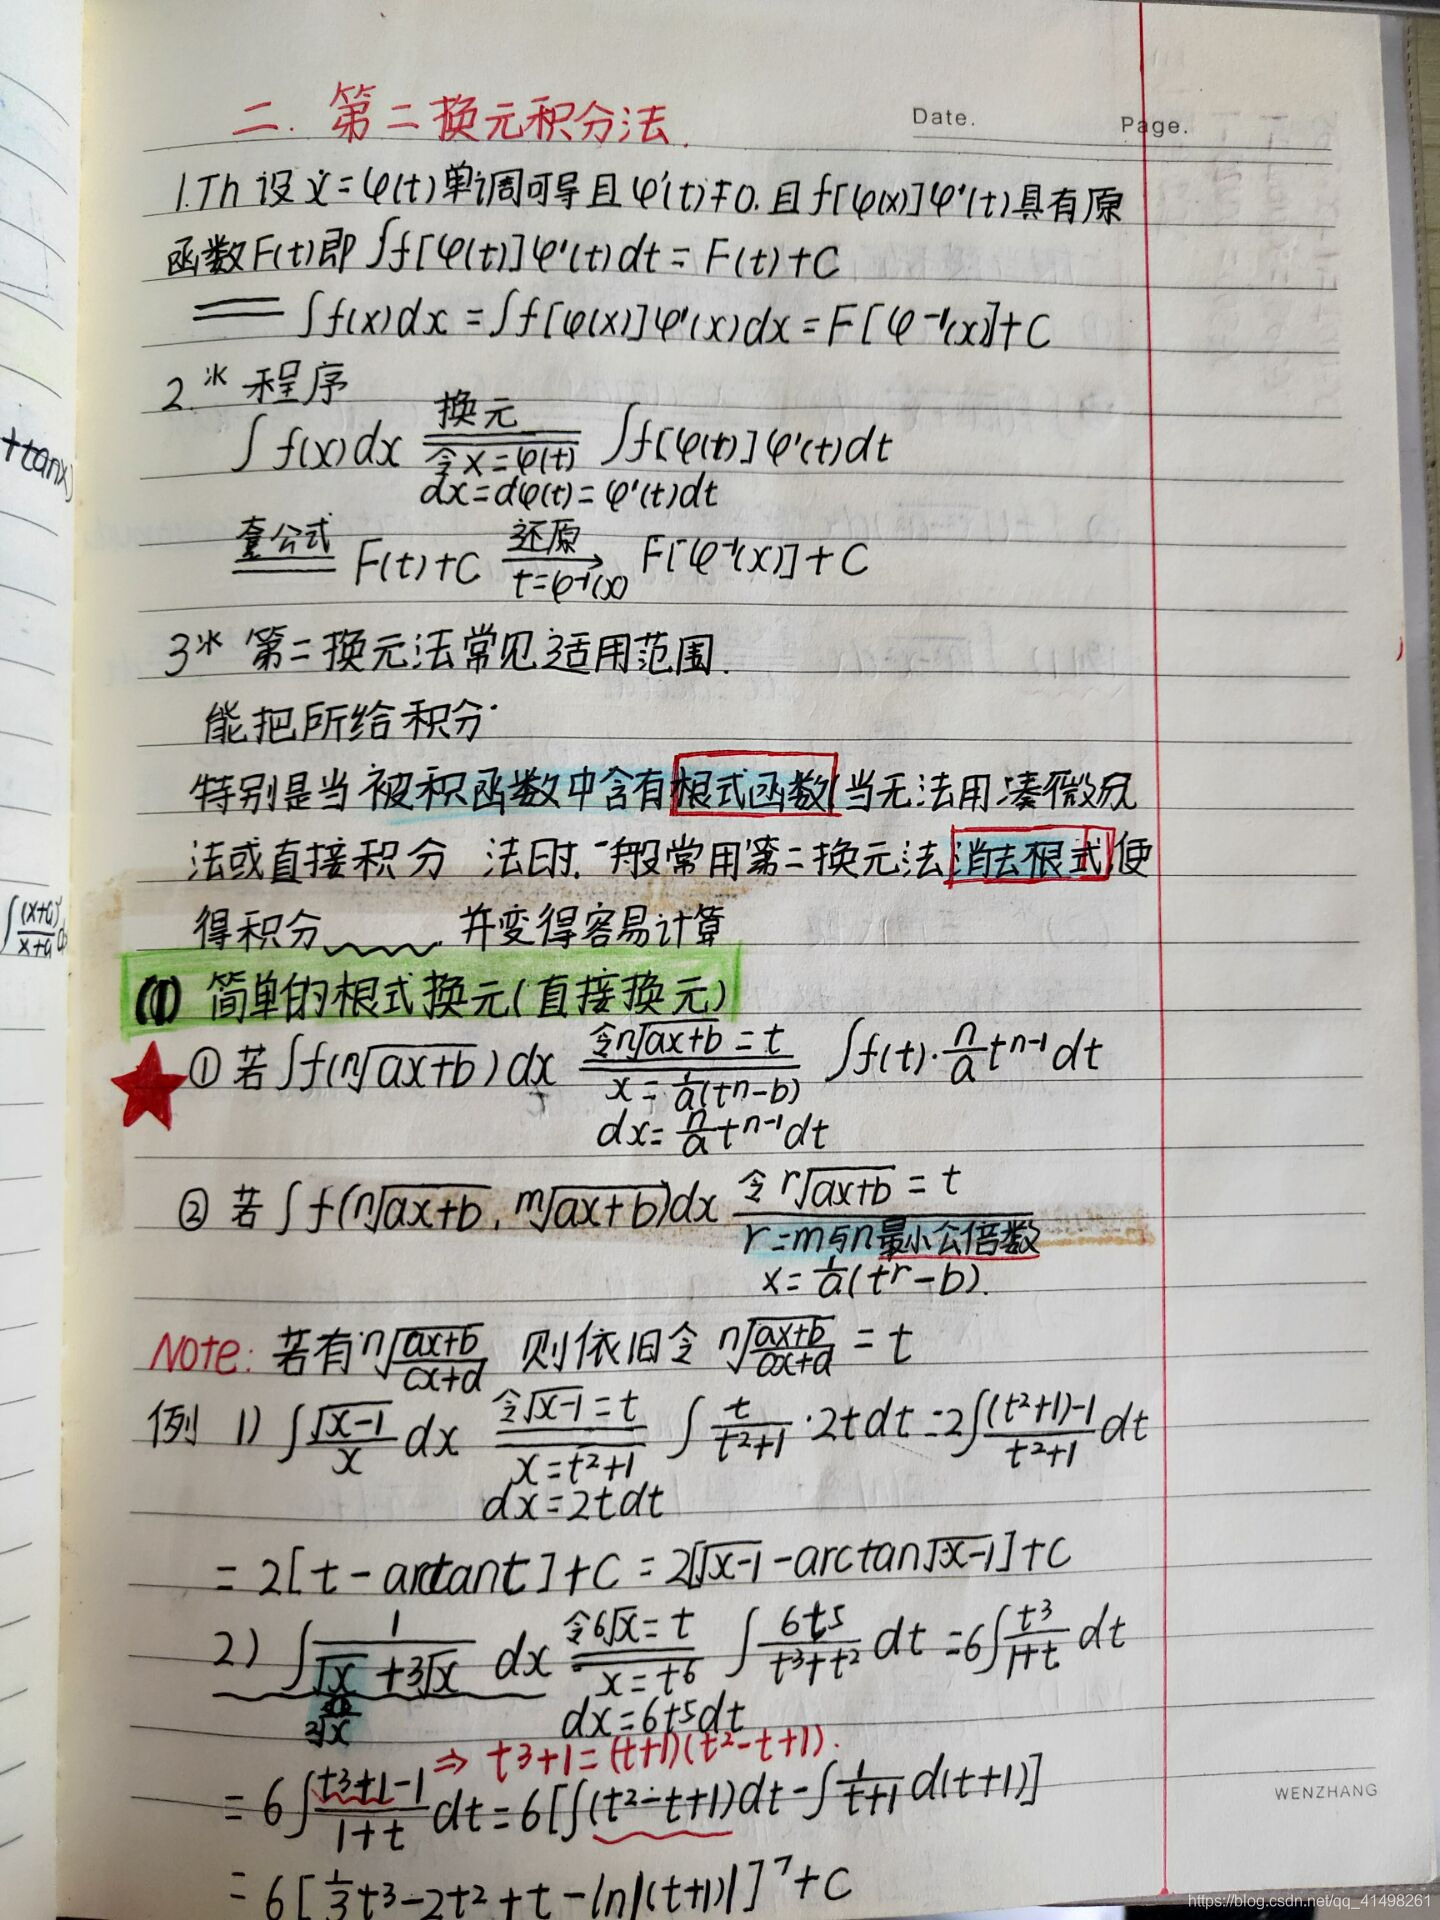 Date.
Page.
二. 第二换元积分法.
1.Th 设x=φ(t)单调可导且φ'(t)≠0.且f[φ(x)]φ'(t)具有原
函数F(t)即∫f[φ(t)]φ'(t)dt=F(t)+C
══ ∫f(x)dx=∫f[φ(x)]φ'(x)dx=F[φ⁻¹(x)]+C
2.* 程序
∫f(x)dx 换元 令x=φ(t) ∫f[φ(t)]φ'(t)dt
dx=dφ(t)=φ'(t)dt
套公式 F(t)+C 还原 t=φ⁻¹(x) F[φ⁻¹(x)]+C
3* 第二换元法常见适用范围.
能把所给积分
特别是当被积函数中含有根式函数(当无法用凑微分
法或直接积分 法时.一般常用第二换元法消去根式,使
得积分 并变得容易计算
(1) 简单的根式换元(直接换元)
① 若∫f(n√(ax+b))dx 令n√(ax+b)=t ∫f(t)·n/a tⁿ⁻¹dt
x=1/a(tⁿ-b)
dx=n/a tⁿ⁻¹dt
② 若∫f(n√(ax+b), m√(ax+b))dx 令r√(ax+b)=t
r=m与n最小公倍数
x=1/a(tʳ-b).
Note: 若有n√((ax+b)/(cx+d)) 则依旧令 n√((ax+b)/(cx+d))=t
例 1) ∫√(x-1)/x dx 令√(x-1)=t ∫t/(t²+1)·2tdt=2∫((t²+1)-1)/(t²+1)dt
x=t²+1
dx=2tdt
=2[t-arctant]+C=2[√(x-1)-arctan√(x-1)]+C
2) ∫1/(√x+3√x) dx 令6√x=t ∫6t⁵/(t³+t²)dt=6∫t³/(1+t)dt
x=t⁶
dx=6t⁵dt
⇒ t³+1=(t+1)(t²-t+1).
=6∫(t³+1-1)/(1+t)dt=6[∫(t²-t+1)dt-∫1/(t+1)d(t+1)]
=6[1/3t³-2t²+t-ln|(t+1)|]+C
+tanx)
∫(x+a)²/(x+a)d
WENZHANG
https://blog.csdn.net/qq_41498261